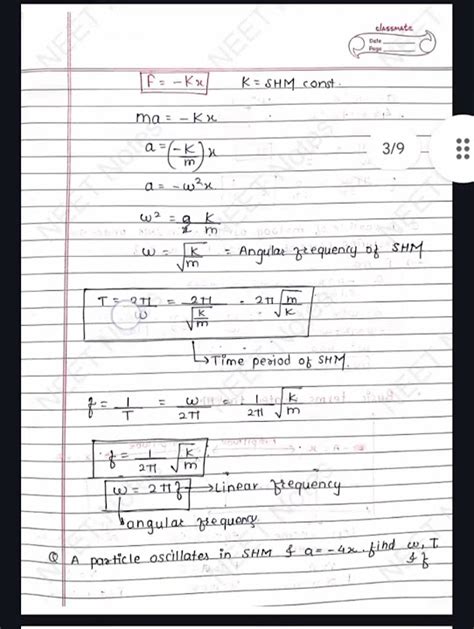 classmate
Date
Page
F = -Kx    K = SHM const.
ma = -Kx
3/9
a = (-K/m) x
a = -ω²x
ω² = K/m
ω = √(K/m) = Angular frequency of SHM
T = 2π/ω = 2π/√(K/m) = 2π √(m/K)
↳ Time period of SHM.
f = 1/T = ω/2π = 1/2π √(K/m)
f = 1/2π √(K/m)
ω = 2πf → Linear frequency
angular frequency
Q A particle oscillates in SHM & a = -4x. find ω, T
& f
NEET Notes